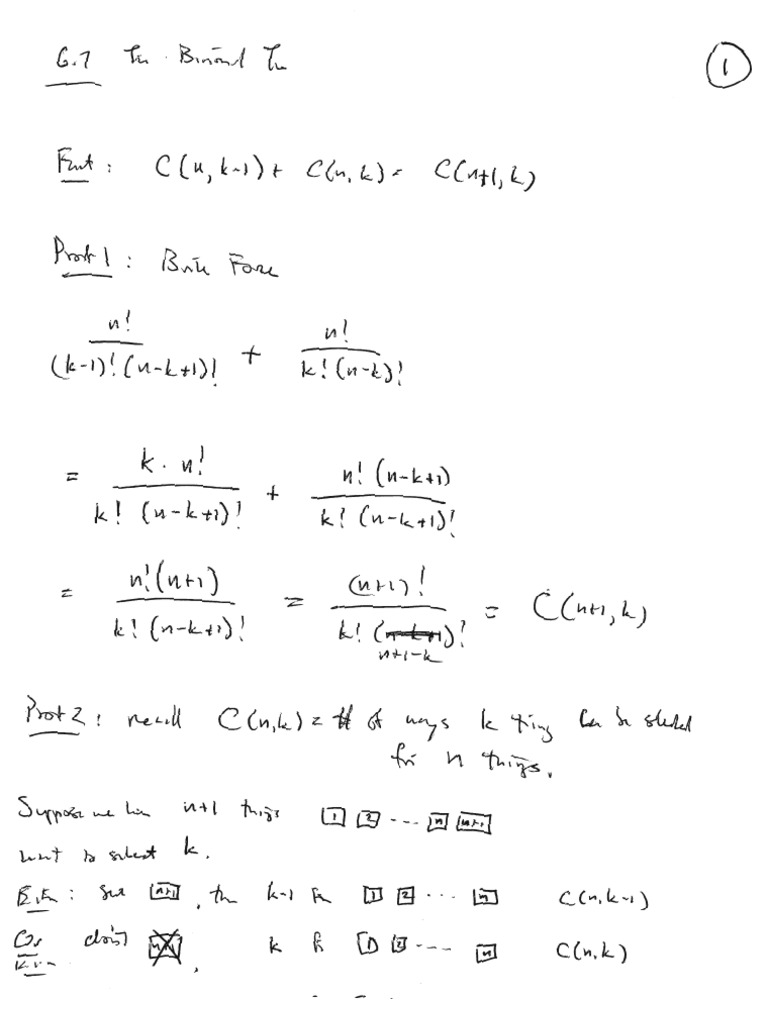 6.7 The Binomial Thm
1
Fact: C(n, k-1) + C(n, k) = C(n+1, k)
Proof 1: Brute Force
n! / (k-1)! (n-k+1)! + n! / k! (n-k)!
= k · n! / k! (n-k+1)! + n! (n-k+1) / k! (n-k+1)!
= n! (n+1) / k! (n-k+1)! = (n+1)! / k! (n+1-k)! = C(n+1, k)
Proof 2: recall C(n,k) = # of ways k things can be selected
from n things.
Suppose we have n+1 things 1 2 ... n n+1
want to select k.
Either: n+1, then k-1 from 1 2 ... n C(n, k-1)
Or n+1, k from 1 2 ... n C(n, k)